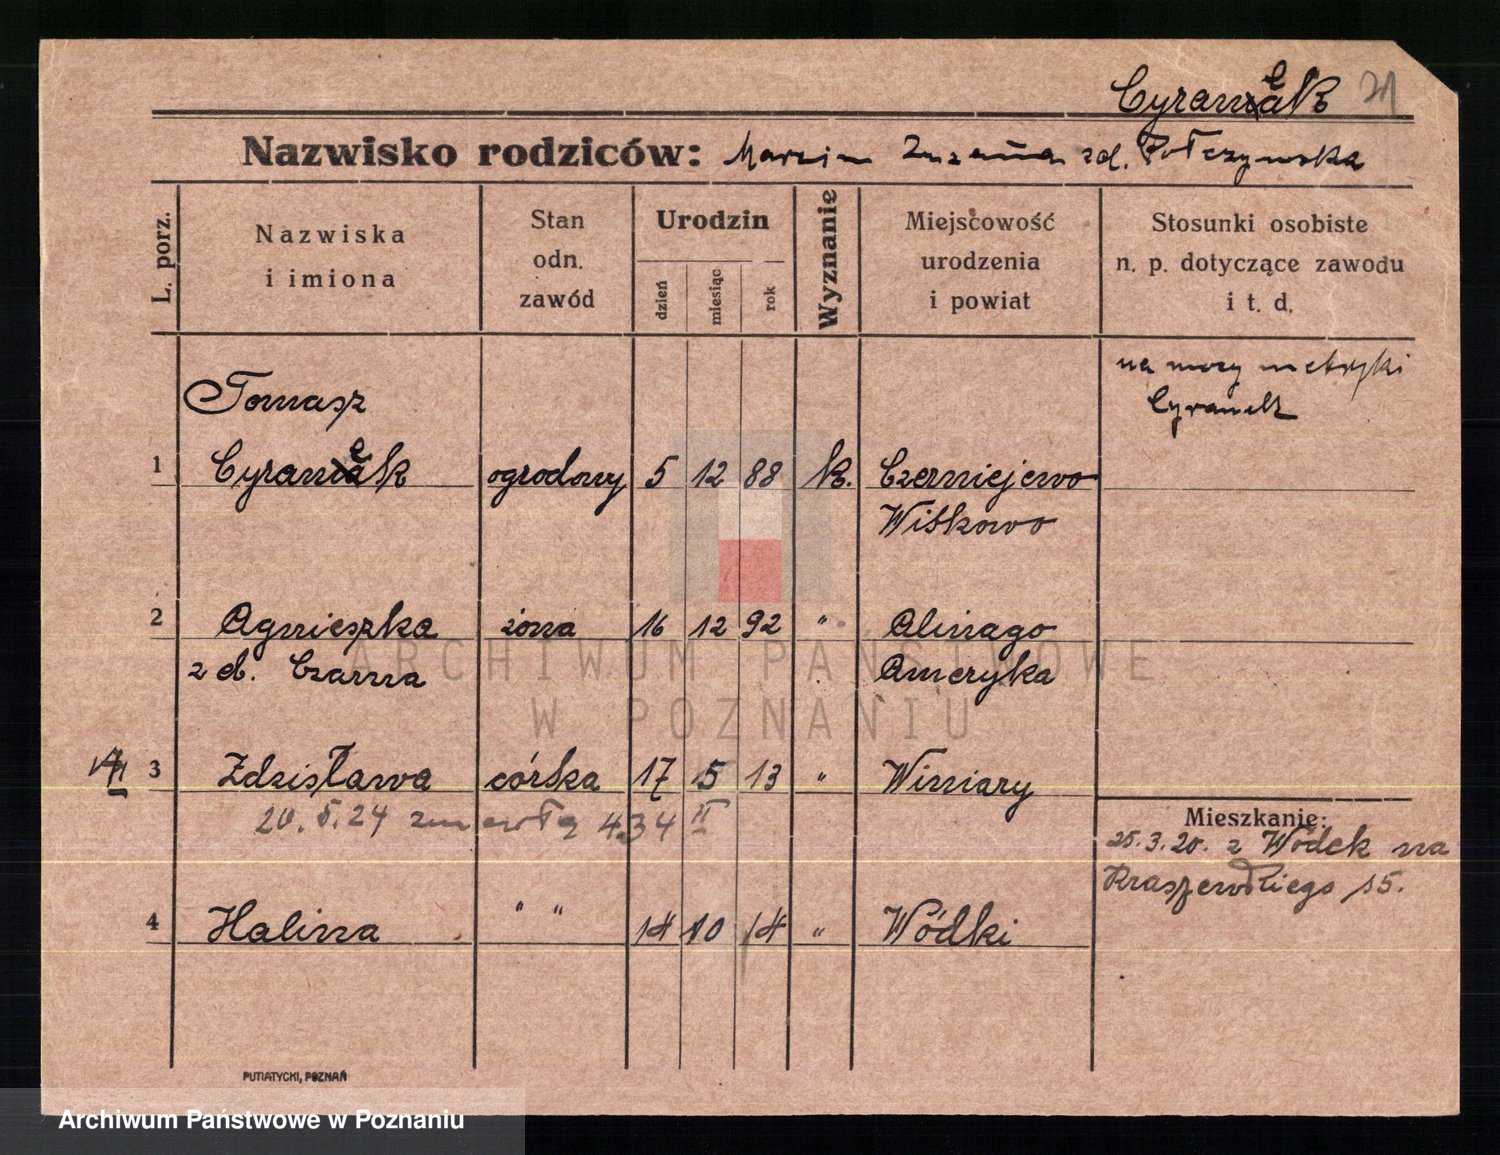 Cyranek 21
Nazwisko rodziców: Marcin Zuzanna zd. Połczynska
L. porz.
Nazwiska
i imiona
Stan
odn.
zawód
Urodzin
dzień
miesiąc
rok
Wyznanie
Miejscowość
urodzenia
i powiat
Stosunki osobiste
n. p. dotyczące zawodu
i t. d.
na mocy metryki
Cyranek
Tomasz
1 Cyranek ogrodowy 5 12 88 k. Czerniejewo
Witkowo
2 Agnieszka żona 16 12 92 " Alinago
zd. Czarna Ameryka
3 Zdzisława córka 17 5 13 " Winiary
20.5.24 zmarła 434 II
Mieszkanie:
25.3.20. z Wódek na
Kraszewskiego 15.
4 Halina " " 14 10 14 " Wódki
PUTIATYCKI, POZNAŃ
ARCHIWUM PAŃSTWOWE
W POZNANIU
Archiwum Państwowe w Poznaniu